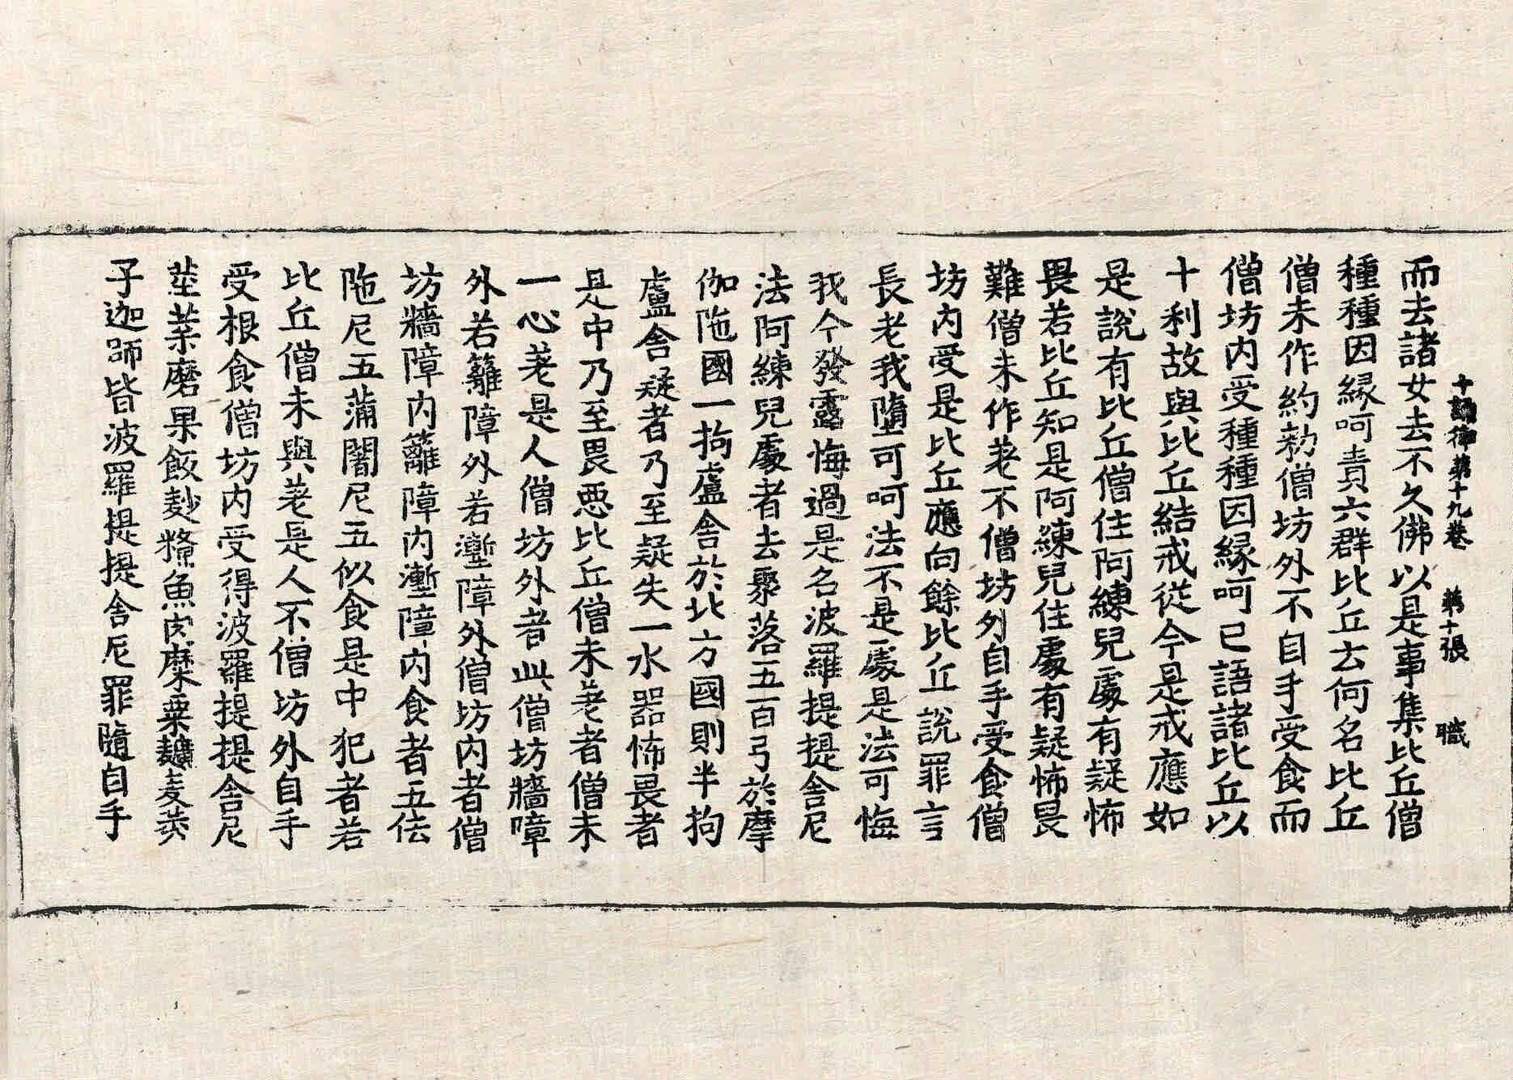 十誦律第十九卷　第十張　職
而去諸女去不久佛以是事集比丘僧
種種因緣呵責六群比丘去何名比丘
僧未作約勑僧坊外不自手受食而
僧坊內受種種因緣呵已語諸比丘以
十利故與比丘結戒從今是戒應如
是說有比丘僧住阿練兒處有疑怖
畏若比丘知是阿練兒住處有疑怖畏
難僧未作差不僧坊外自手受食僧
坊內受是比丘應向餘比丘說罪言
長老我墮可呵法不是處是法可悔
我今發露悔過是名波羅提提舍尼
法阿練兒處者去聚落五百弓於摩
伽陁國一拘盧舍於北方國則半拘
盧舍疑者乃至疑失一水器怖畏者
是中乃至畏惡比丘僧未差者僧未
一心差是人僧坊外者此僧坊牆障
外若籬障外若塹障外僧坊內者僧
坊牆障內籬障內塹障內食者五佉
陁尼五蒲闍尼五似食是中犯者若
比丘僧未與差是人不僧坊外自手
受根食僧坊內受得波羅提提舍尼
莖葉磨果飯麨糒魚肉糜粟䵃麦莠
子迦師皆波羅提提舍尼罪隨自手